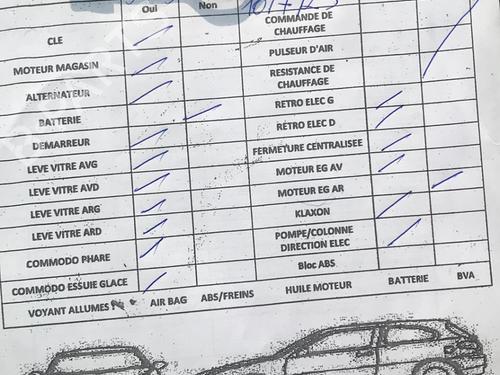 Oui Non
CLE
MOTEUR MAGASIN
ALTERNATEUR
BATTERIE
DEMARREUR
LEVE VITRE AVG
LEVE VITRE AVD
LEVE VITRE ARG
LEVE VITRE ARD
COMMODO PHARE
COMMODO ESSUIE GLACE
COMMANDE DE
CHAUFFAGE
PULSEUR D'AIR
RESISTANCE DE
CHAUFFAGE
RETRO ELEC G
RETRO ELEC D
FERMETURE CENTRALISEE
MOTEUR EG AV
MOTEUR EG AR
KLAXON
POMPE/COLONNE
DIRECTION ELEC
Bloc ABS
VOYANT ALLUMES AIR BAG ABS/FREINS HUILE MOTEUR BATTERIE BVA